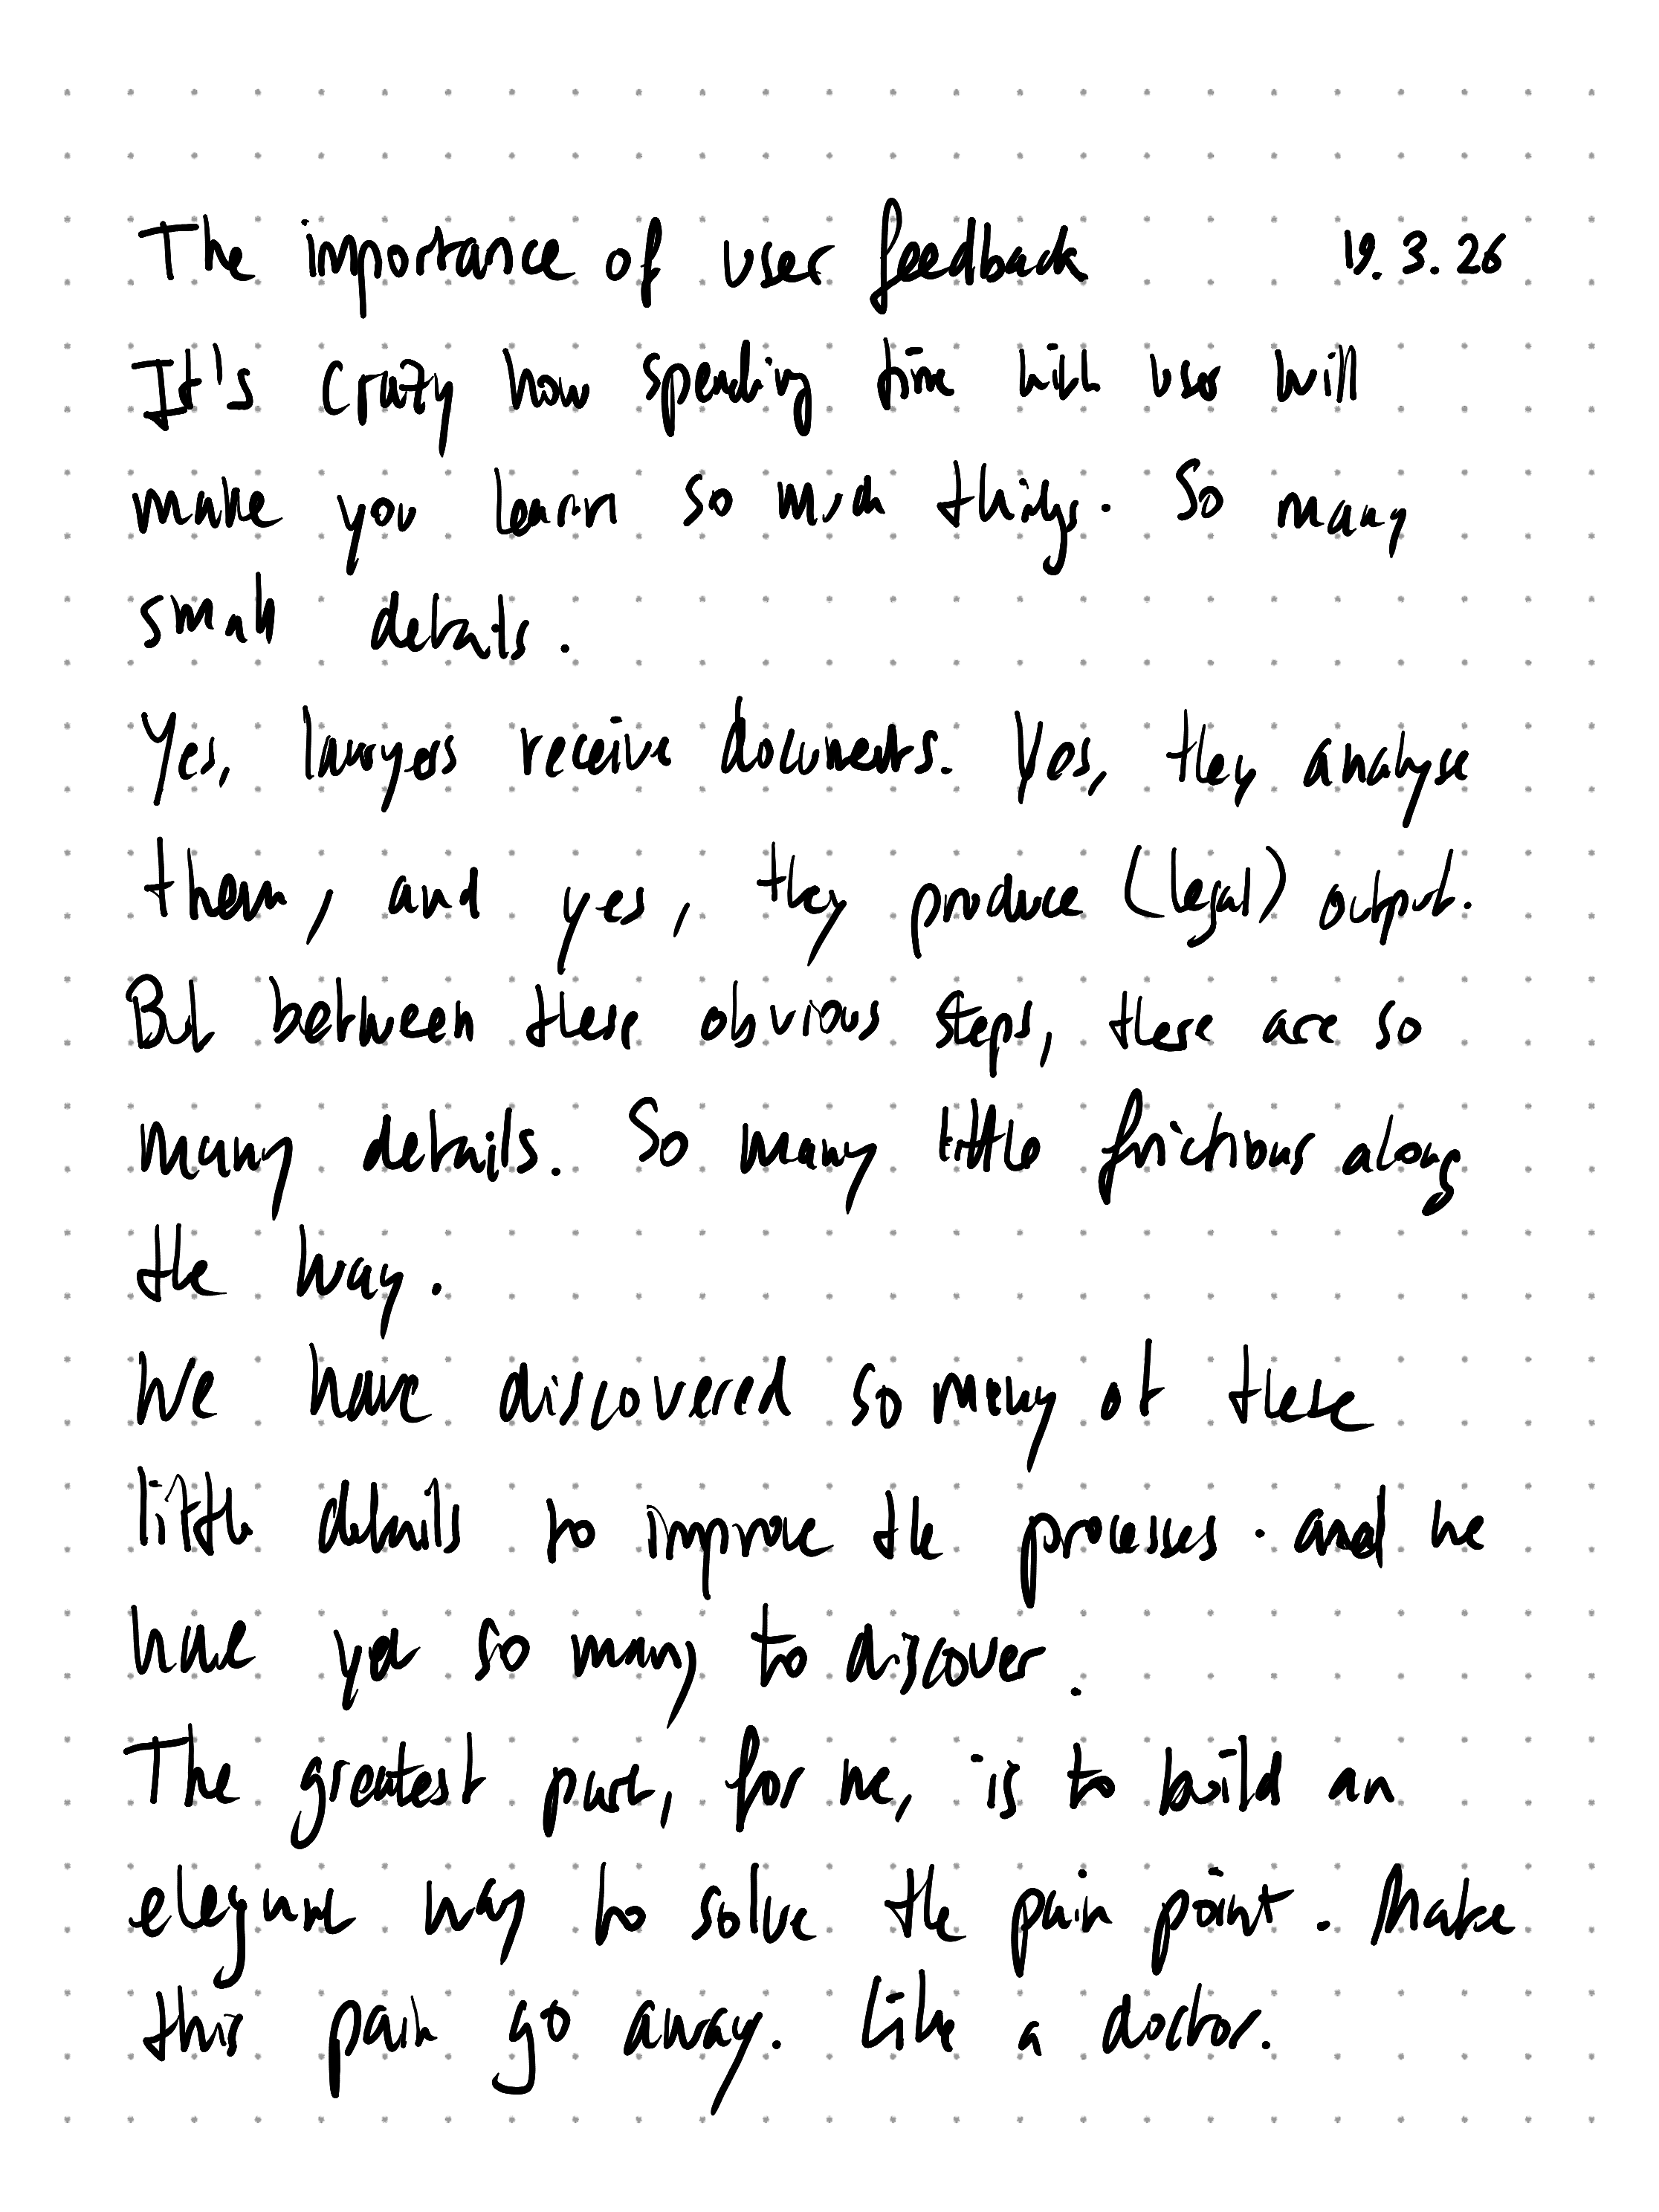 The importance of user feedback 19.3.26
It's crazy how spending time with user will
make you learn so much things. So many
small details.
Yes, lawyers receive documents. Yes, they analyse
them, and yes, they produce (legal) output.
But between these obvious steps, there are so
many details. So many little frictions along
the way.
We have discovered so many of these
little details to improve the processes. and we
have yet so many to discover.
The greatest part, for me, is to build an
elegant way to solve the pain point. Make
this pain go away. Like a doctor.